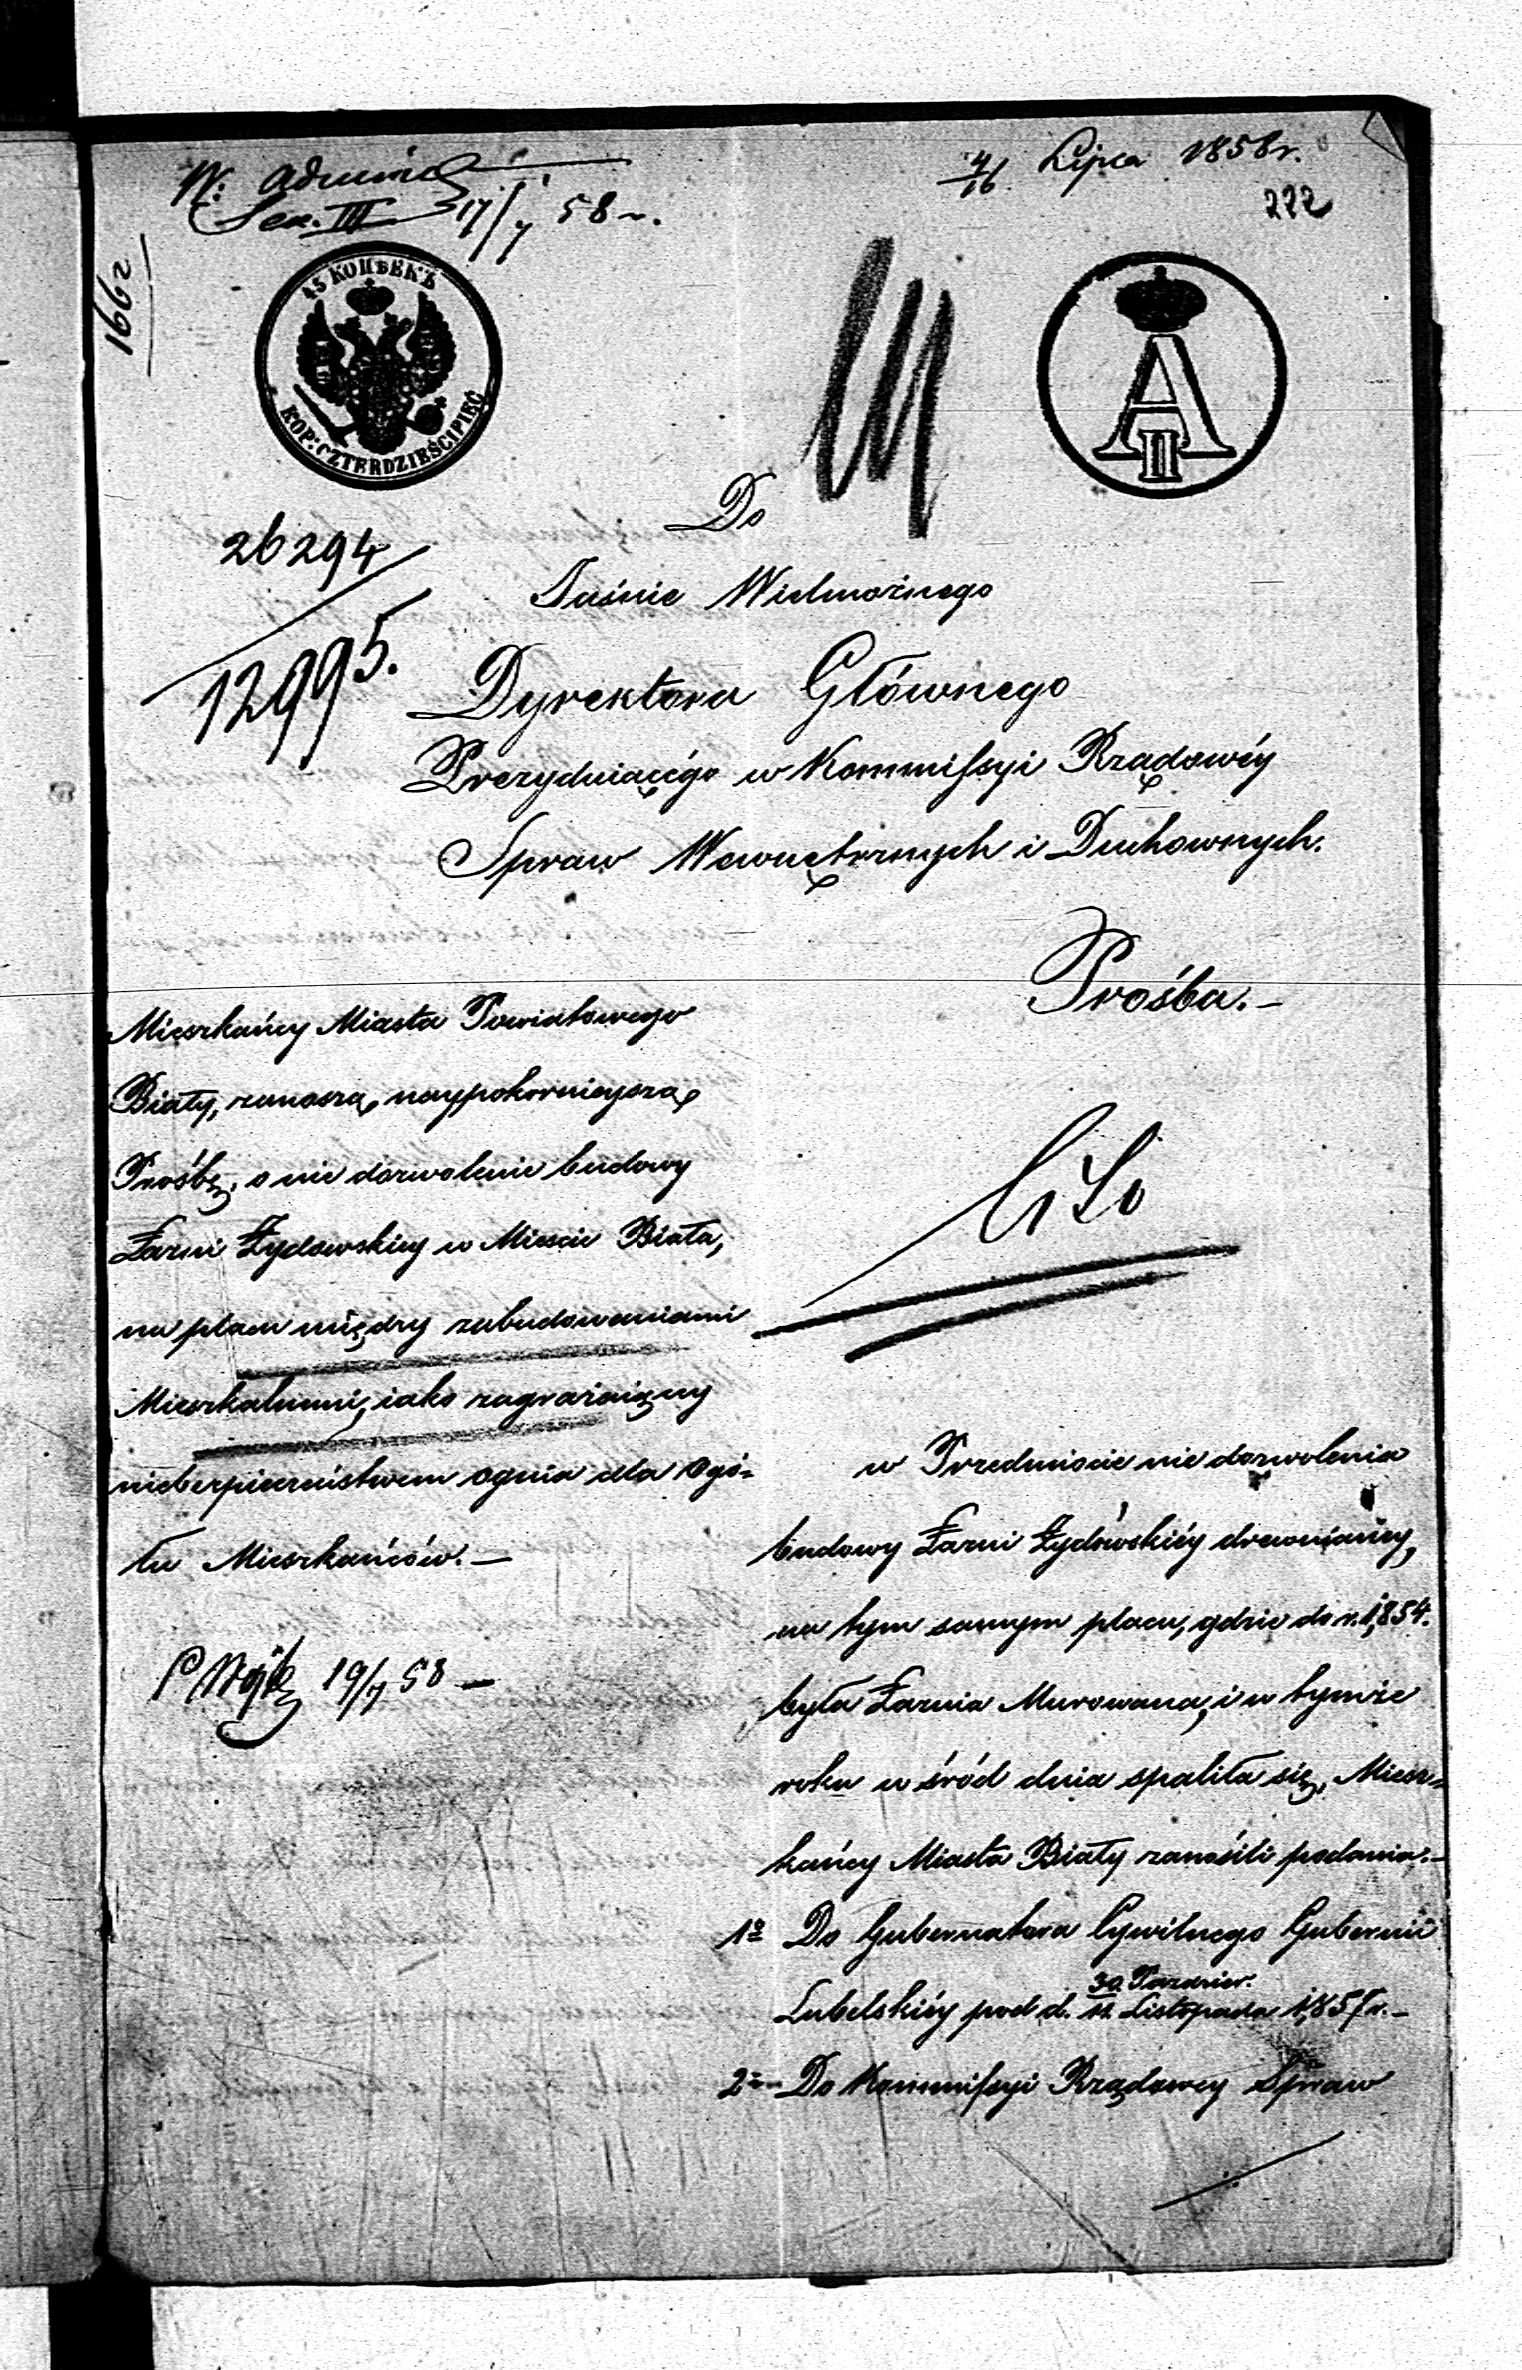 W: Admini
Sek. III 17/7 58 r.
4/16 Lipca 1858 r.
222
1662
45 КОПѢЕКЪ
KOP: CZTERDZIEŚCI PIĘĆ
A II
26294
12995.
Do
Jaśnie Wielmożnego
Dyrektora Głównego
Prezyduiącégo w Kommissyi Rządowéy
Spraw Wewnętrznych i Duchownych.
Prośba.-
Mieszkańcy Miasta Powiatowego
Biały, zanoszą naypokornieyszą
Prośbę, o nie dozwolenie budowy
Łazni Żydowskiey w Mieście Biała,
na placu między zabudowaniami
Mieszkalnemi, iako zagrażaiący
niebezpieczeństwem ognia dla Ogó-
łu Mieszkańców.-
19/7 58 -
Cito
w Przedmiocie nie dozwolenia
budowy Łazni Żydowskiéy drewnianey,
na tym samym placu, gdzie do r. 1854.
była Łaznia Murowana, i w tymże
roku w śród dnia spaliła się, Miesz-
kańcy Miasta Biały zanośili podania.-
1º Do Gubernatora Cywilnego Gubernii
30 Pazdzier.
Lubelskiéy pod d. 11. Listopada 1857 r.-
2º Do Kommissyi Rządowey Spraw